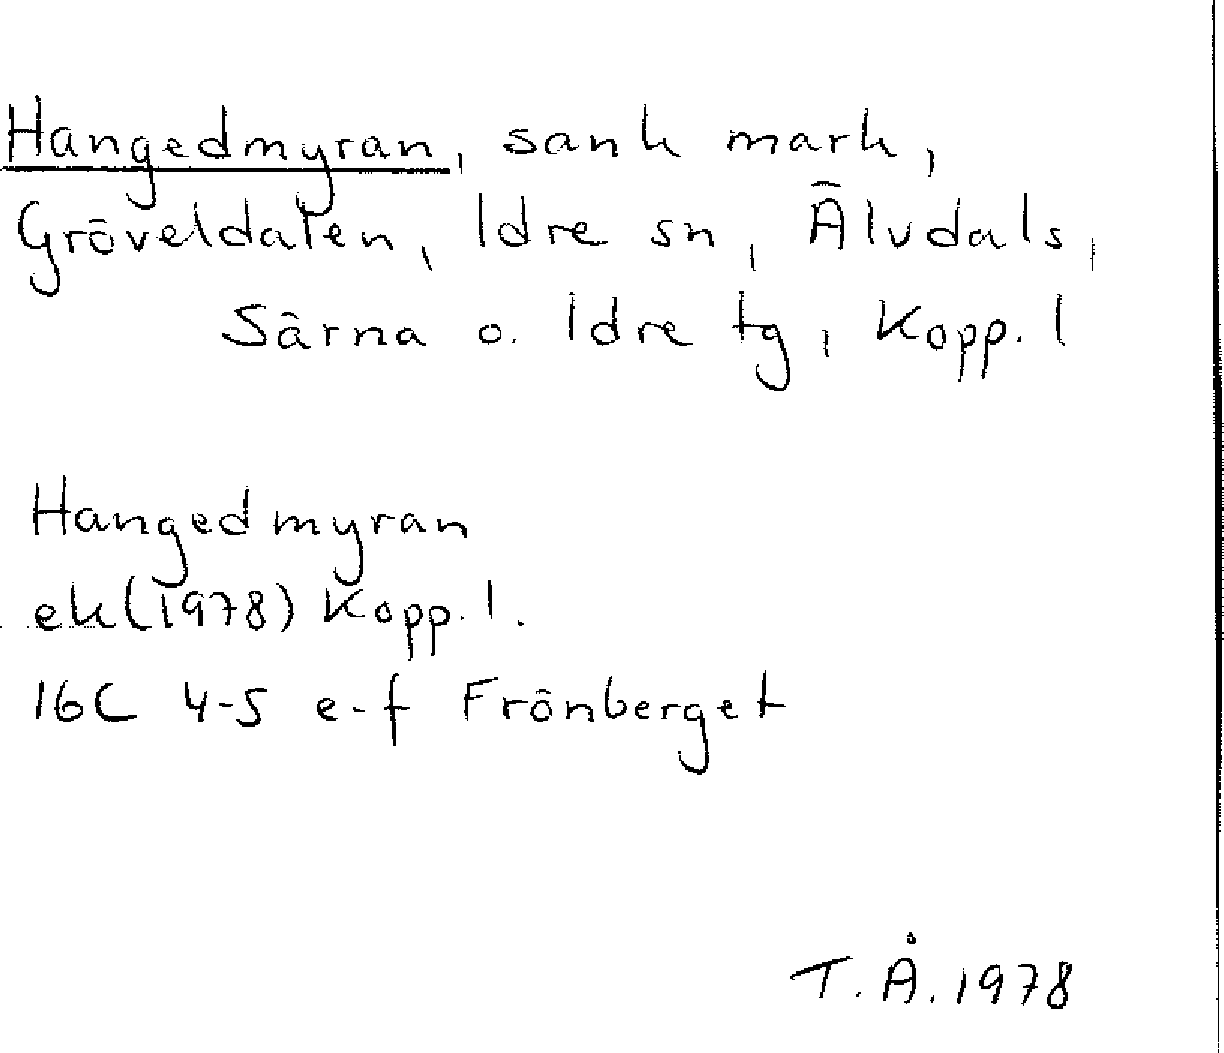 Hangedmyran, sank mark,
Gröveldalen, Idre sn, Älvdals,
Särna o. Idre tg, Kopp. l
Hangedmyran
ek(1978) Kopp. l.
16C 4-5 e-f Frönberget
T. Å. 1978